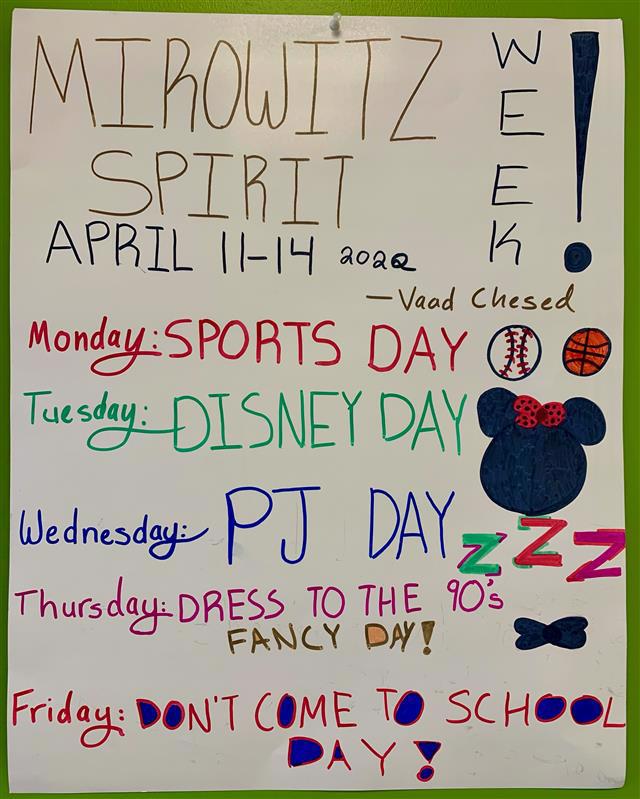 MIROWITZ
SPIRIT
WEEK!
APRIL 11-14 2022
-Vaad Chesed
Monday: SPORTS DAY
Tuesday: DISNEY DAY
Wednesday: PJ DAY
ZZZ
Thursday: DRESS TO THE 90's
FANCY DAY!
Friday: DON'T COME TO SCHOOL
DAY!